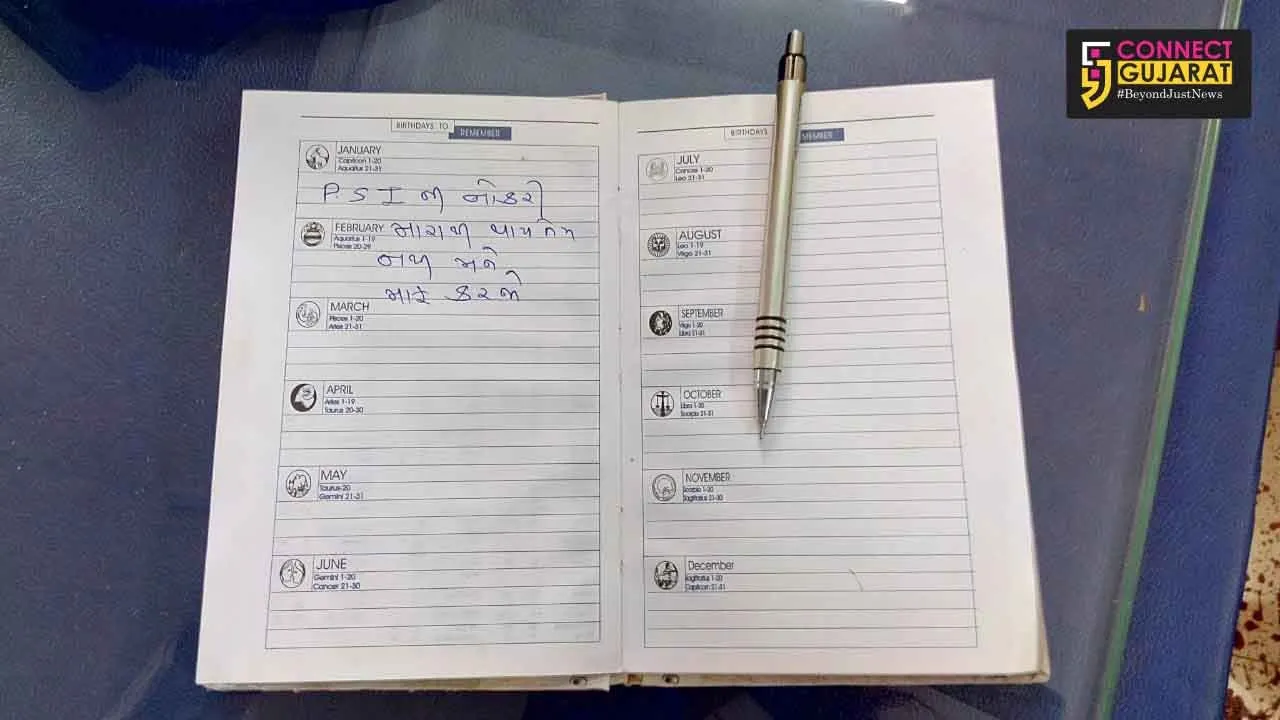 CONNECT
GUJARAT
#BeyondJustNews
BIRTHDAYS TO REMEMBER
JANUARY
Capricon 1-20
Aquatius 21-31
P.S.I ની નોકરી
FEBRUARY
Aquatius 1-19
Pisces 20-29
મારાથી થાય તેમ
નથી મને
માફ કરજો
MARCH
Pisces 1-20
Aries 21-31
APRIL
Aries 1-19
Taurus 20-30
MAY
Taurus-20
Gemini 21-31
JUNE
Gemini 1-20
Cancer 21-30
BIRTHDAYS MEMBER
JULY
Cances 1-20
Leo 21-31
AUGUST
Leo 1-19
Virgo 21-31
SEPTEMBER
Virgo 1-20
Libra 21-31
OCTOBER
Libra 1-20
Scorpio 21-31
NOVEMBER
Scorpio 1-20
Sagittatius 21-30
December
Sagittatius 1-20
Capticon 21-31